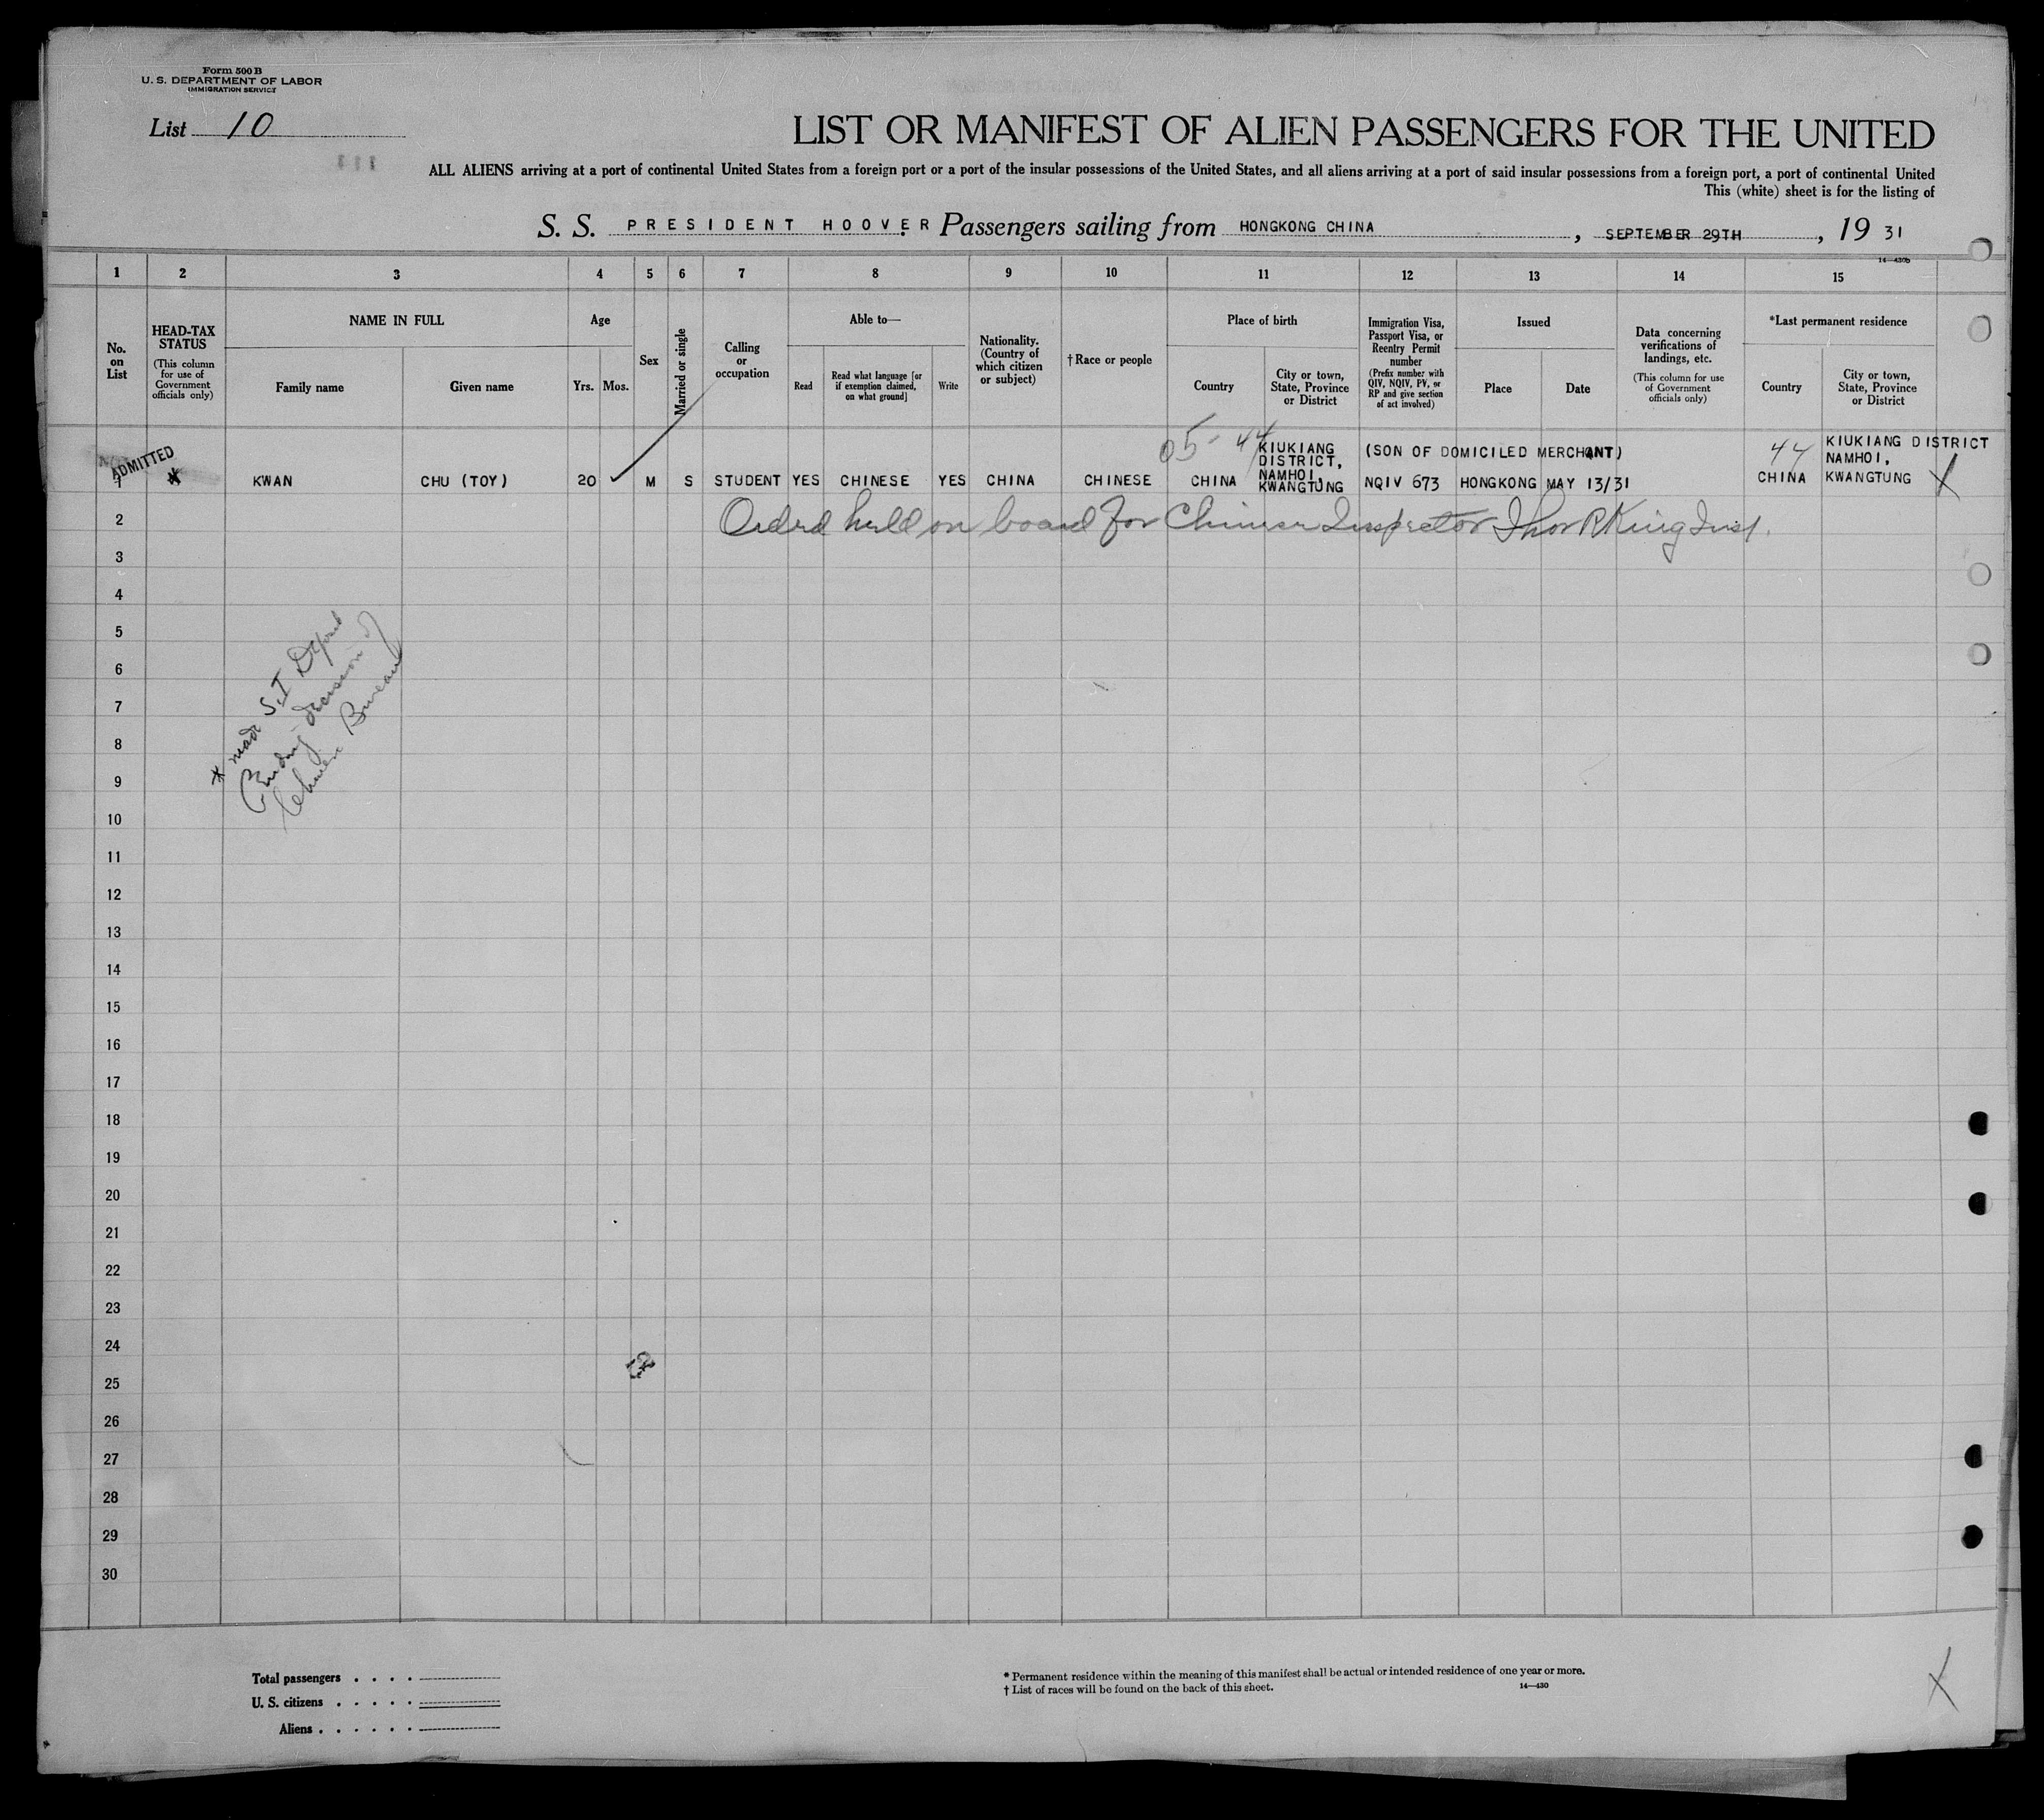 Form 500 B
U. S. DEPARTMENT OF LABOR
IMMIGRATION SERVICE
List 10
111
LIST OR MANIFEST OF ALIEN PASSENGERS FOR THE UNITED
ALL ALIENS arriving at a port of continental United States from a foreign port or a port of the insular possessions of the United States, and all aliens arriving at a port of said insular possessions from a foreign port, a port of continental United
This (white) sheet is for the listing of
S. S. PRESIDENT HOOVER Passengers sailing from HONGKONG CHINA, SEPTEMBER 29TH, 19 31
14—430b
1 2 3 4 5 6 7 8 9 10 11 12 13 14 15
No. on List
HEAD-TAX STATUS
(This column for use of Government officials only)
NAME IN FULL
Family name
Given name
Age
Yrs. Mos.
Sex
Married or single
Calling or occupation
Able to—
Read
Read what language [or if exemption claimed, on what ground]
Write
Nationality. (Country of which citizen or subject)
†Race or people
Place of birth
Country
City or town, State, Province or District
Immigration Visa, Passport Visa, or Reentry Permit number
(Prefix number with QIV, NQIV, PV, or RP and give section of act involved)
Issued
Place
Date
Data concerning verifications of landings, etc.
(This column for use of Government officials only)
*Last permanent residence
Country
City or town, State, Province or District
05- 44
44
ADMITTED
1 * KWAN CHU (TOY) 20 ✓ M S STUDENT YES CHINESE YES CHINA CHINESE CHINA KIUKIANG DISTRICT, NAMHOI, KWANGTUNG (SON OF DOMICILED MERCHANT) NQIV 673 HONGKONG MAY 13/31 CHINA KIUKIANG DISTRICT NAMHOI, KWANGTUNG X
2 held on board for Chinese Inspector King Insp.
3
4
5
6
7
8
9
10
11
12
13
14
15
16
17
18
19
20
21
22
23
24
25
26
27
28
29
30
* made S.I
Pending decision of
Chinese Bureau
Total passengers . . . .
U. S. citizens . . . . .
Aliens . . . . . .
* Permanent residence within the meaning of this manifest shall be actual or intended residence of one year or more.
† List of races will be found on the back of this sheet.
14—430
X